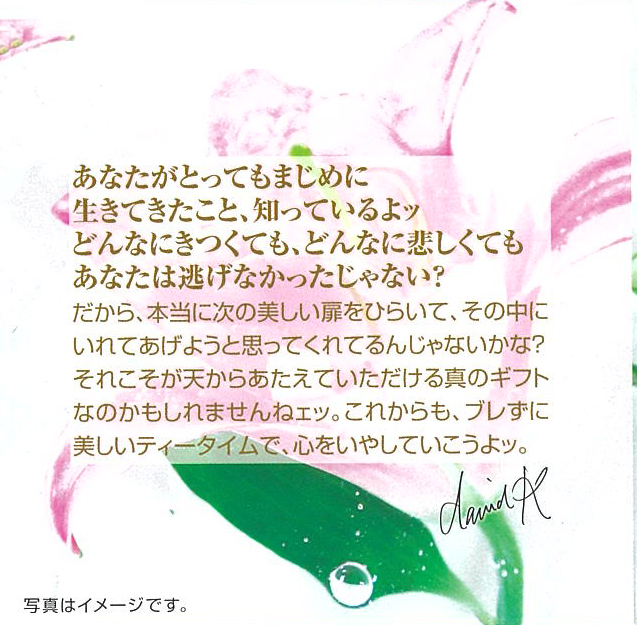 あなたがとってもまじめに
生きてきたこと、知っているよッ
どんなにきつくても、どんなに悲しくても
あなたは逃げなかったじゃない?
だから、本当に次の美しい扉をひらいて、その中に
いれてあげようと思ってくれてるんじゃないかな?
それこそが天からあたえていただける真のギフト
なのかもしれませんねェッ。これからも、ブレずに
美しいティータイムで、心をいやしていこうよッ。
写真はイメージです。